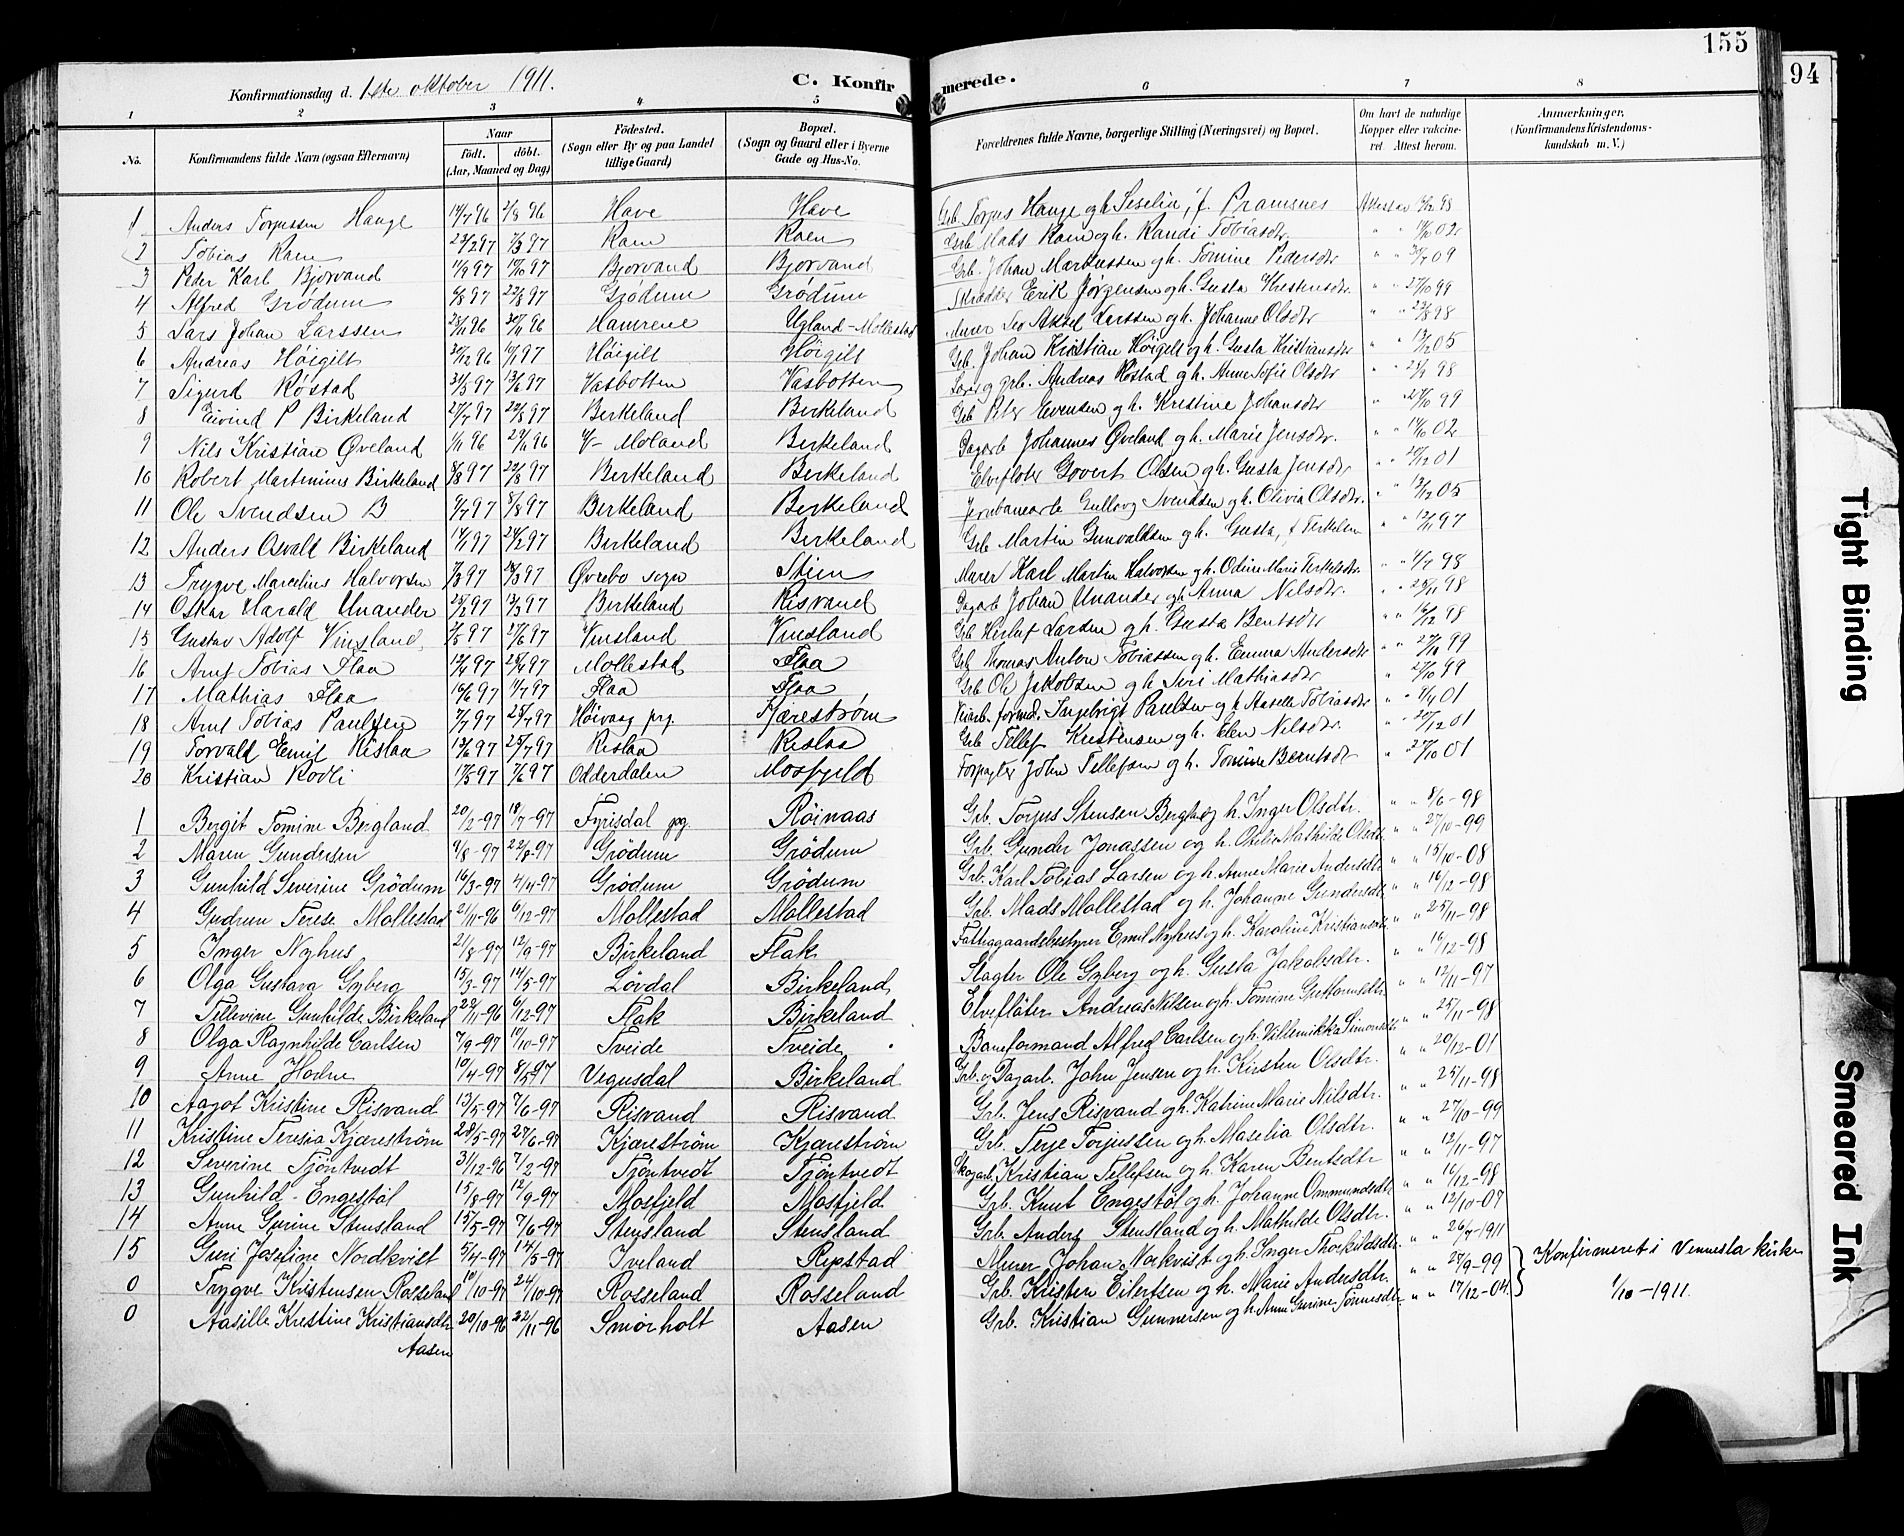 155
94
Konfirmationsdag d. 1ste oktober 1911.
C. Konfirmerede.
1 2 3 4 5 6 7 8
No.
Konfirmandens fulde Navn (ogsaa Efternavn)
Naar født. døbt. (Aar, Maaned og Dag)
Födested. (Sogn eller By og paa Landet tillige Gaard)
Bopæl. (Sogn og Gaard eller i Byerne Gade og Hus-No.
Forældrenes fulde Navne, borgerlige Stilling (Næringsvei) og Bopæl.
Om havt de naturlige Kopper eller vaccineret. Attest herom.
Anmærkninger. (Konfirmandens Kristendomskundskab m. V.)
1 Anders Torjussen Hauge 14/7 96 2/8 96 Have Have Grb. Torjus Hauge og h. Seselia, f. Pramsnes Attester 16/12 98
2 Tobias Ramn 23/2 97 7/3 97 Ramn Raen Grb Mads Ramn og h. Randi Tobiasdr. " " 11/10 02
3 Peder Karl Bjorvand 11/9 97 17/10 97 Bjorvand Bjorvand Grb. Johan Markussen og h. Tomine Pedersdtr " " 3/7 09
4 Alfred Grødum 6/8 97 22/8 97 Grødum Grødum Skrædder Erik Jørgensen og h. Gusta Krestensdr. " " 27/10 99
5 Lars Johan Larssen 23/11 96 30/11 96 Hamrene Ugland-Mollestad Murer Leo Aksel Larssen og h. Johanne Olsdtr " " 22/8 98
6 Andreas Høigilt 20/12 96 6/1 97 Høigilt Høigilt Grb. Johan Kristian Høigilt og h. Gusta Kristiansdr " " 13/12 05
7 Sigurd Røstad 31/3 97 13/6 97 Vasbotten Vasbotten Lærer og grb. Andreas Røstad og h. Anne Sofie Olsdtr " " 25/11 98
8 Eivind P Birkeland 27/7 97 22/8 97 Birkeland Birkeland Grb Peter Evensen og h. Kristine Johansdtr " " 27/10 99
9 Nils Kristian Øveland 1/11 96 29/11 96 V-Moland Birkeland Dagarb Johannes Øveland og h. Marie Jensdtr. " " 11/10 02
10 Robert Martinius Birkeland 8/8 97 29/8 97 Birkeland Birkeland Elvefløter Govert Olsen og h. Gusta Jensdtr " " 20/12 01
11 Ole Svendsen B 9/7 97 8/8 97 Birkeland Birkeland Jernbanearb Gullov Svendsen og h. Olivia Olsdtr. " " 13/12 05
12 Anders Osvald Birkeland 14/1 97 24/2 97 Birkeland Birkeland Grb Martin Gunvaldsen og h. Gusta, f Terkelsen " " 12/11 97
13 Trygve Marcelius Halvorsen 7/3 97 28/3 97 Øvrebø sogn Stien Murer Karl Martin Halvorsen og h. Odine Marie Terkelsdr. " " 4/7 98
14 Oskar Harald Unander 25/2 97 13/3 97 Birkeland Risvand Dagarb Johan Unander og h Anna Nilsdtr. " " 25/11 98
15 Gustav Adolf Vinsland, 3/5 97 27/6 97 Vinsland Vinsland Grb Herluf Larsen og h. Gusta Bentsdtr " " 16/12 98
16 Arnt Tobias Flaa 12/4 97 25/4 97 Mollestad Flaa Grb Thomas Anton Tobiassen og h. Emma Andersdtr " " 27/10 99
17 Mathias Flaa 16/6 97 11/7 97 Flaa Flaa Grb Ole Jakobsen og h Siri Mathiasdtr " 27/10 99
18 Arnt Tobias Paulsen 7/7 97 25/7 97 Høivaag prg. Kjærestrøm Veiarb. formd. Ingebrigt Paulsen og h Aaselle Tobiasdtr " 4/4 01
19 Torvald Emil Rislaa 13/6 97 25/7 97 Rislaa Rislaa Grb Tellef Kristensen og h. Elen Nilsdtr. " 20/12 01
20 Kristian Rodli 17/5 97 7/6 97 Odderdalen Mosfjeld Forpagter John Tellefsen og h. Tomine Berntsdr " " 27/10 01
1 Bergit Tomine Bergland 20/2-97 18/7-97 Fyrisdal pg. Röinaas Grb. Torjus Stensen Bergland og h. Inger Olsdtr. " " 8/6-98
2 Maren Gundersen 4/8-97 22/8-97 Grödum Grödum Grb. Gunder Jonassen og h. Otelie Mathilde Olsdtr " " 27/10-99
3 Gunhild Severine Grödum 16/3-97 4/4-97 Grödum Grödum Grb. Karl Tobias Larsen og h. Anne Marie Andersdtr " " 15/10-08
4 Gudrun Terese Mollestad 21/11-96 6/12-97 Mollestad Mollestad Grb. Mads Mollestad og h. Johanne Gundersdtr " " 16/12-98
5 Inger Nyhus 21/8-97 12/9-97 Birkeland Flak Fattiggaardsbestyrer Emil Nyhus og h. Karoline Kristiansdtr " " 25/11-98
6 Olga Gustava Gyberg 15/3-97 14/5-97 Lövdal Birkeland Slagter Ole Gyberg og h. Gusta Jakobsdtr. " " 16/12-98
7 Tellevine Gunhilde Birkeland 22/11-96 6/12-97 Flak Birkeland Elvefløter Andreas Nilsen og h. Tomine Guttormsdtr " " 12/11-97
8 Olga Ragnhilde Carlsen 7/9-97 10/10-97 Tveide Tveide Baneformand Alfred Carlsen og h. Villemikka Simonsdtr " " 25/11-98
9 Anne Hodne 10/4-97 8/5 97 Vegusdal Birkeland Grb. og Dagarb. John Jensen og h. Kirsten Olsdtr. " " 20/12-01
10 Aagot Kristine Risvand 13/5-97 7/6-97 Risvand Risvand Grb. Jens Risvand og h. Katrine Marie Nilsdtr. " " 25/11-98
11 Kristine Teresia Kjærestrøm 28/5-97 27/6-97 Kjærestrøm Kjærestrøm Grb. Terje Torjussen og h. Maselia Olsdtr. " " 27/10-99
12 Severine Tjöntvedt 31/12-96 7/2-97 Tjöntvedt Tjöntvedt Skogarb. Kristian Tellefsen og h. Karen Bentsdtr " " 12/11-97
13 Gunhild Engestöl 15/8-97 12/9-97 Mosfjeld Mosfjeld Grb. Knut Engestöl og h. Johanne Ommundsdtr " " 16/12-98
14 Anne Gurine Stensland 15/5-97 7/6-97 Stensland Stensland Grb. Anders Stensland og h. Mathilde Olsdtr. " " 12/10-07
15 Guri Josefine Nordkvist 5/4-97 14/5-97 Iveland Repstad Murer Johan Norkvist og h. Inger Thorkildsdtr. " " 26/7-1911
0 Trygve Kristensen Rosseland 10/10-97 24/10-97 Rosseland Rosseland Grb. Kristen Eilertsen og h. Marie Andersdtr. " " 27/9-99
0 Aasille Kristine Kristiansdtr Aasen 20/10-96 22/11-96 Smorholt Aasen Grb. Kristian Gunnersen og h. Anne Gurine Tönnesdtr. " " 17/12-04
Konfirmeret i Vennesla kirke
1/10-1911.
Tight Binding
Smeared Ink